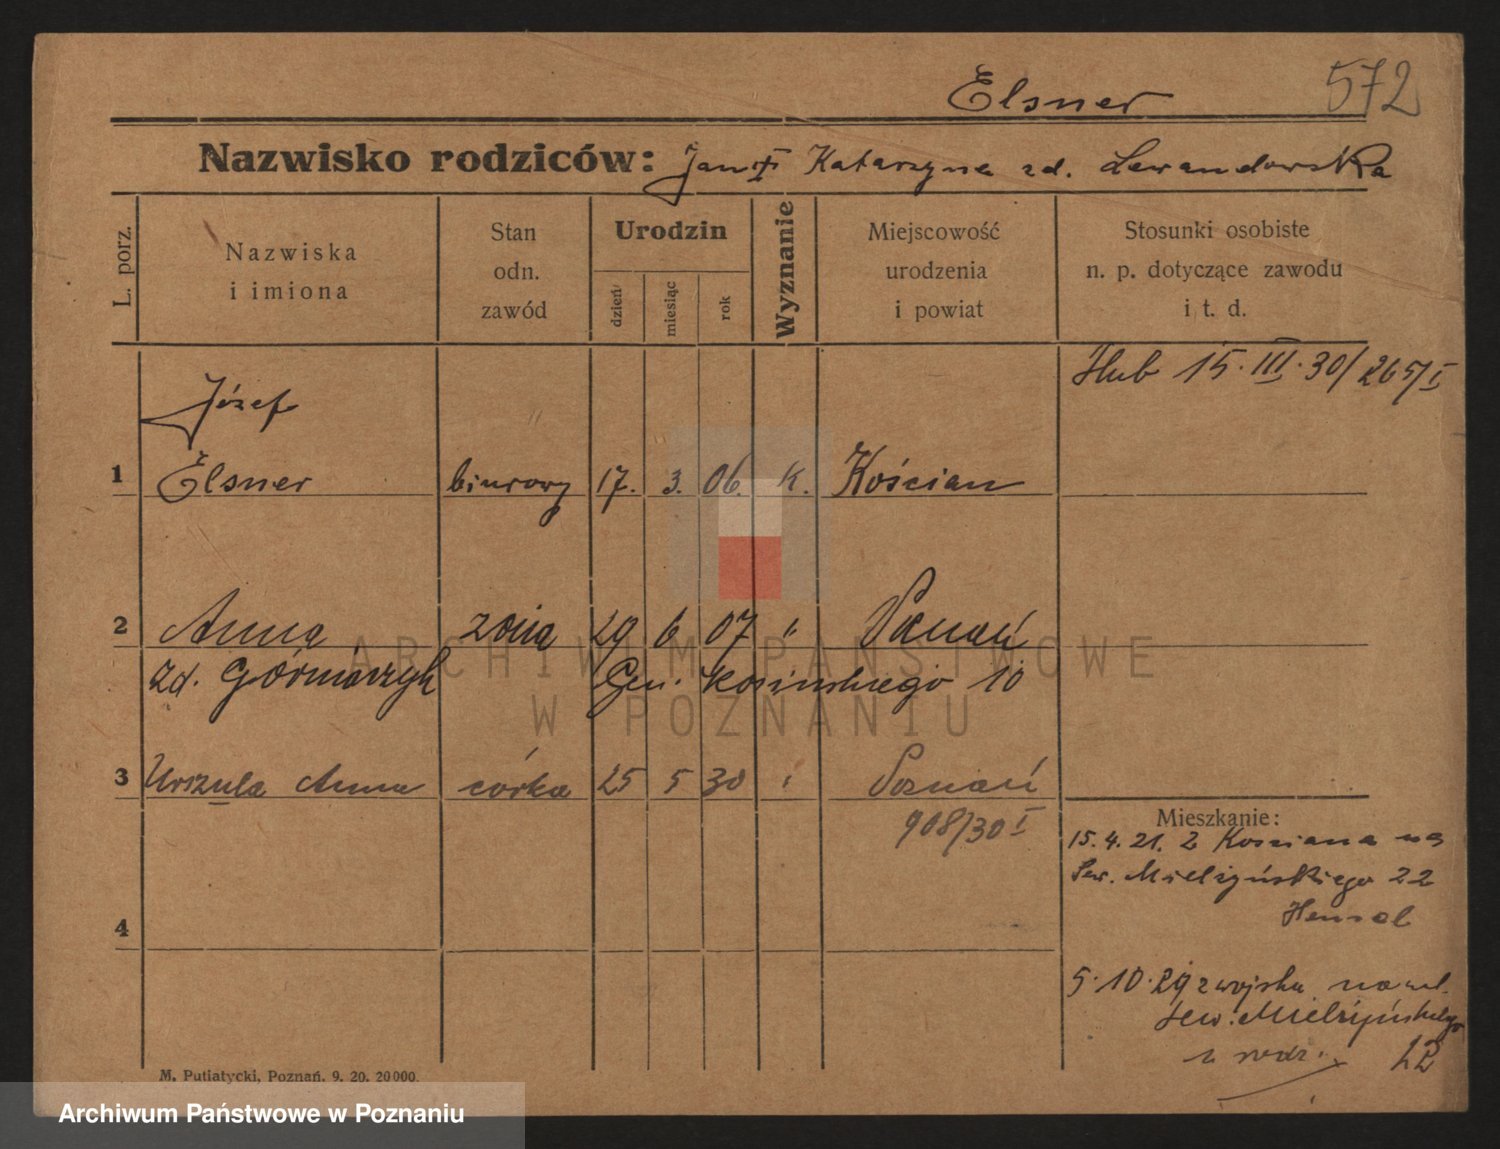 Elsner 572
Nazwisko rodziców: Jan † Katarzyna zd. Lewandowska
L. porz.
Nazwiska
i imiona
Stan
odn.
zawód
Urodzin
dzień
miesiąc
rok
Wyznanie
Miejscowość
urodzenia
i powiat
Stosunki osobiste
n. p. dotyczące zawodu
i t. d.
Ślub 15.III.30/265/I
Józef
1 Elsner biurowy 17. 3. 06. k. Kościan
2 Anna żona 29 6 07 " Poznań
zd. Górniaczyk Gen. Kosińskiego 10
3 Urszula Anna córka 25 5 30 " Poznań
908/30 I
Mieszkanie:
15.4.21. z Kościana na
Sew. Mielżyńskiego 22
Hensel
4
5.10.29 z wojska na ul.
Sew. Mielżyńskiego
u rodz. 22
M. Putiatycki, Poznań. 9. 20. 20000.
ARCHIWUM PAŃSTWOWE
W POZNANIU
Archiwum Państwowe w Poznaniu